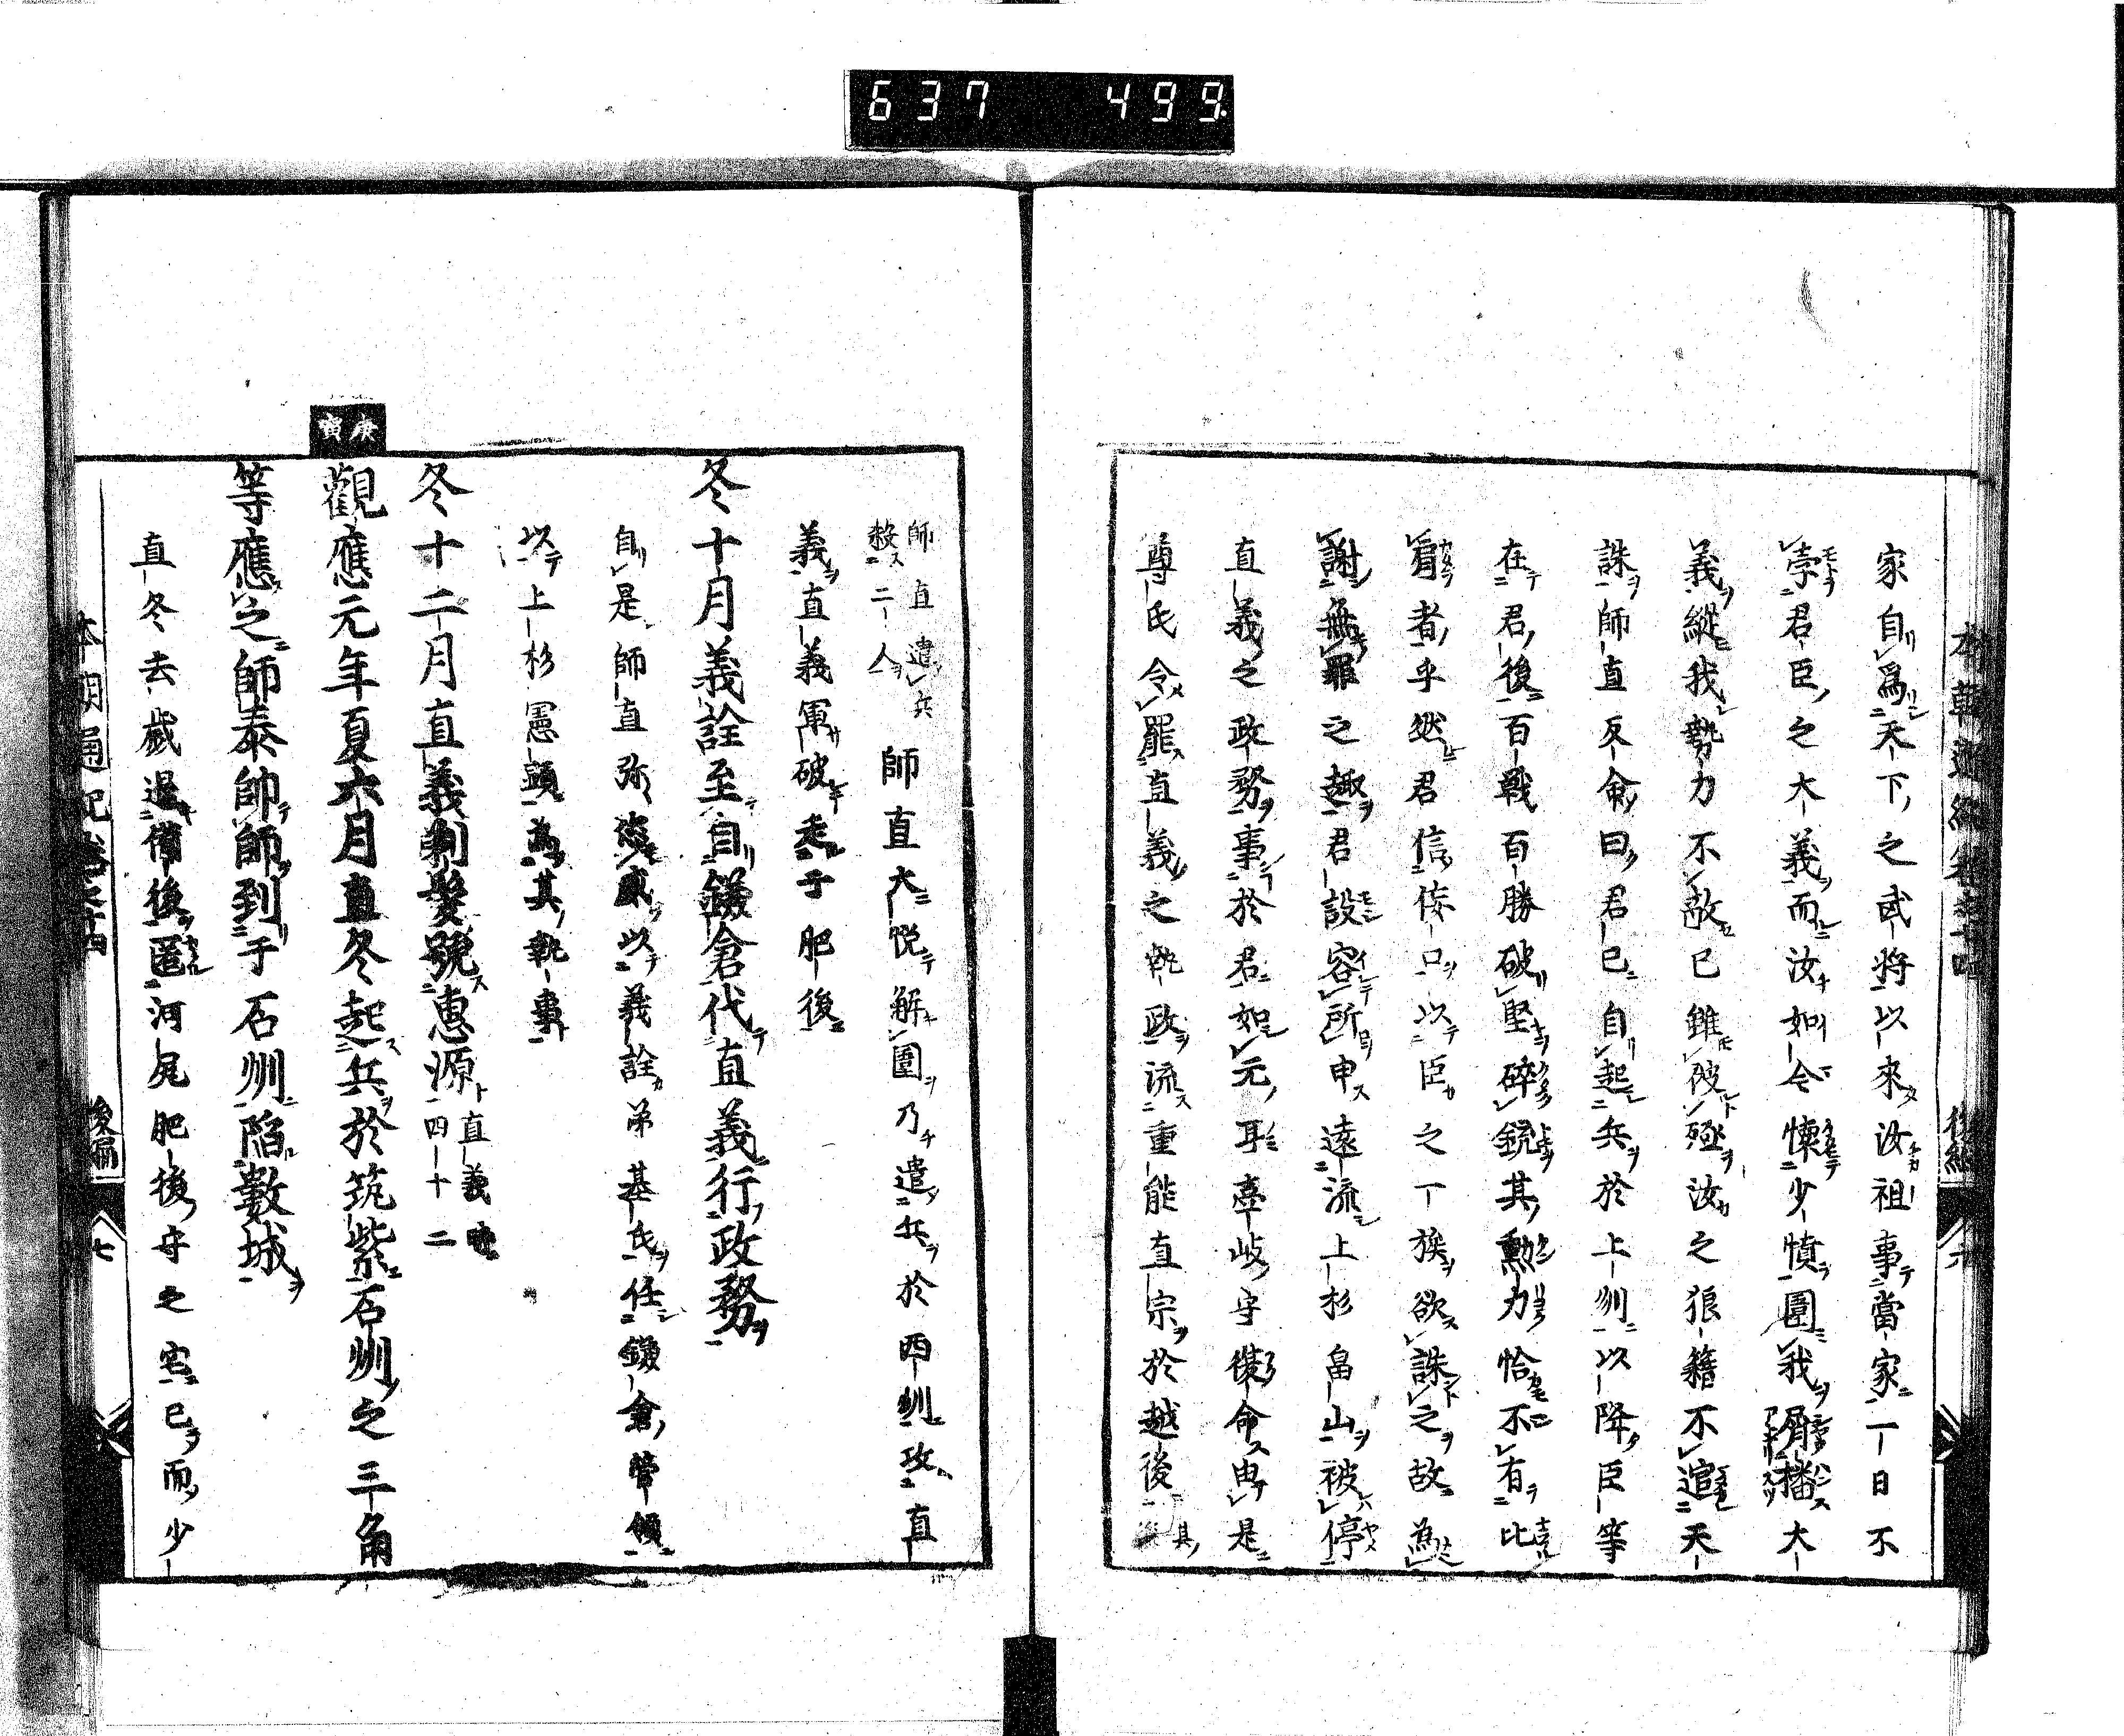 637 499
本朝通紀卷之十四 後編 六
家自爲天下之武將以來汝祖事當家一日不
悖君臣之大義而汝如今懷少憤圍我屑播大
義縱我勢力不敵已雖彼殛汝之狼籍不逭天
誅師直反命曰君已自起兵於上州以降臣等
在君後百戰百勝破堅碎銳其勲力恰不有比
肩者乎然君信侫口以臣之一族欲誅之故為
謝無罪之趣君設容所申遠流上杉畠山被停
直義之政務事於君如元耳壹岐守復命由是
尊氏令罷直義之執政流重能直宗於越後其
師直遣兵
殺二人
師直大悅解圍乃遣兵於四州攻直
義直義軍破走于肥後
冬十月義詮至自鎌倉代直義行政務
自是師直弥盗威以義詮弟基氏任鎌倉管領
以上杉憲顕為其執事
冬十二月直義剃髮號惠源
直義時
四十二
庚寅
觀應元年夏六月直冬起兵於筑紫石州之三角
等應之師泰帥師到于石州陷數城
直冬去歲退備後匿河尻肥後守之宅已而少
本朝通紀卷之十四 後編 七